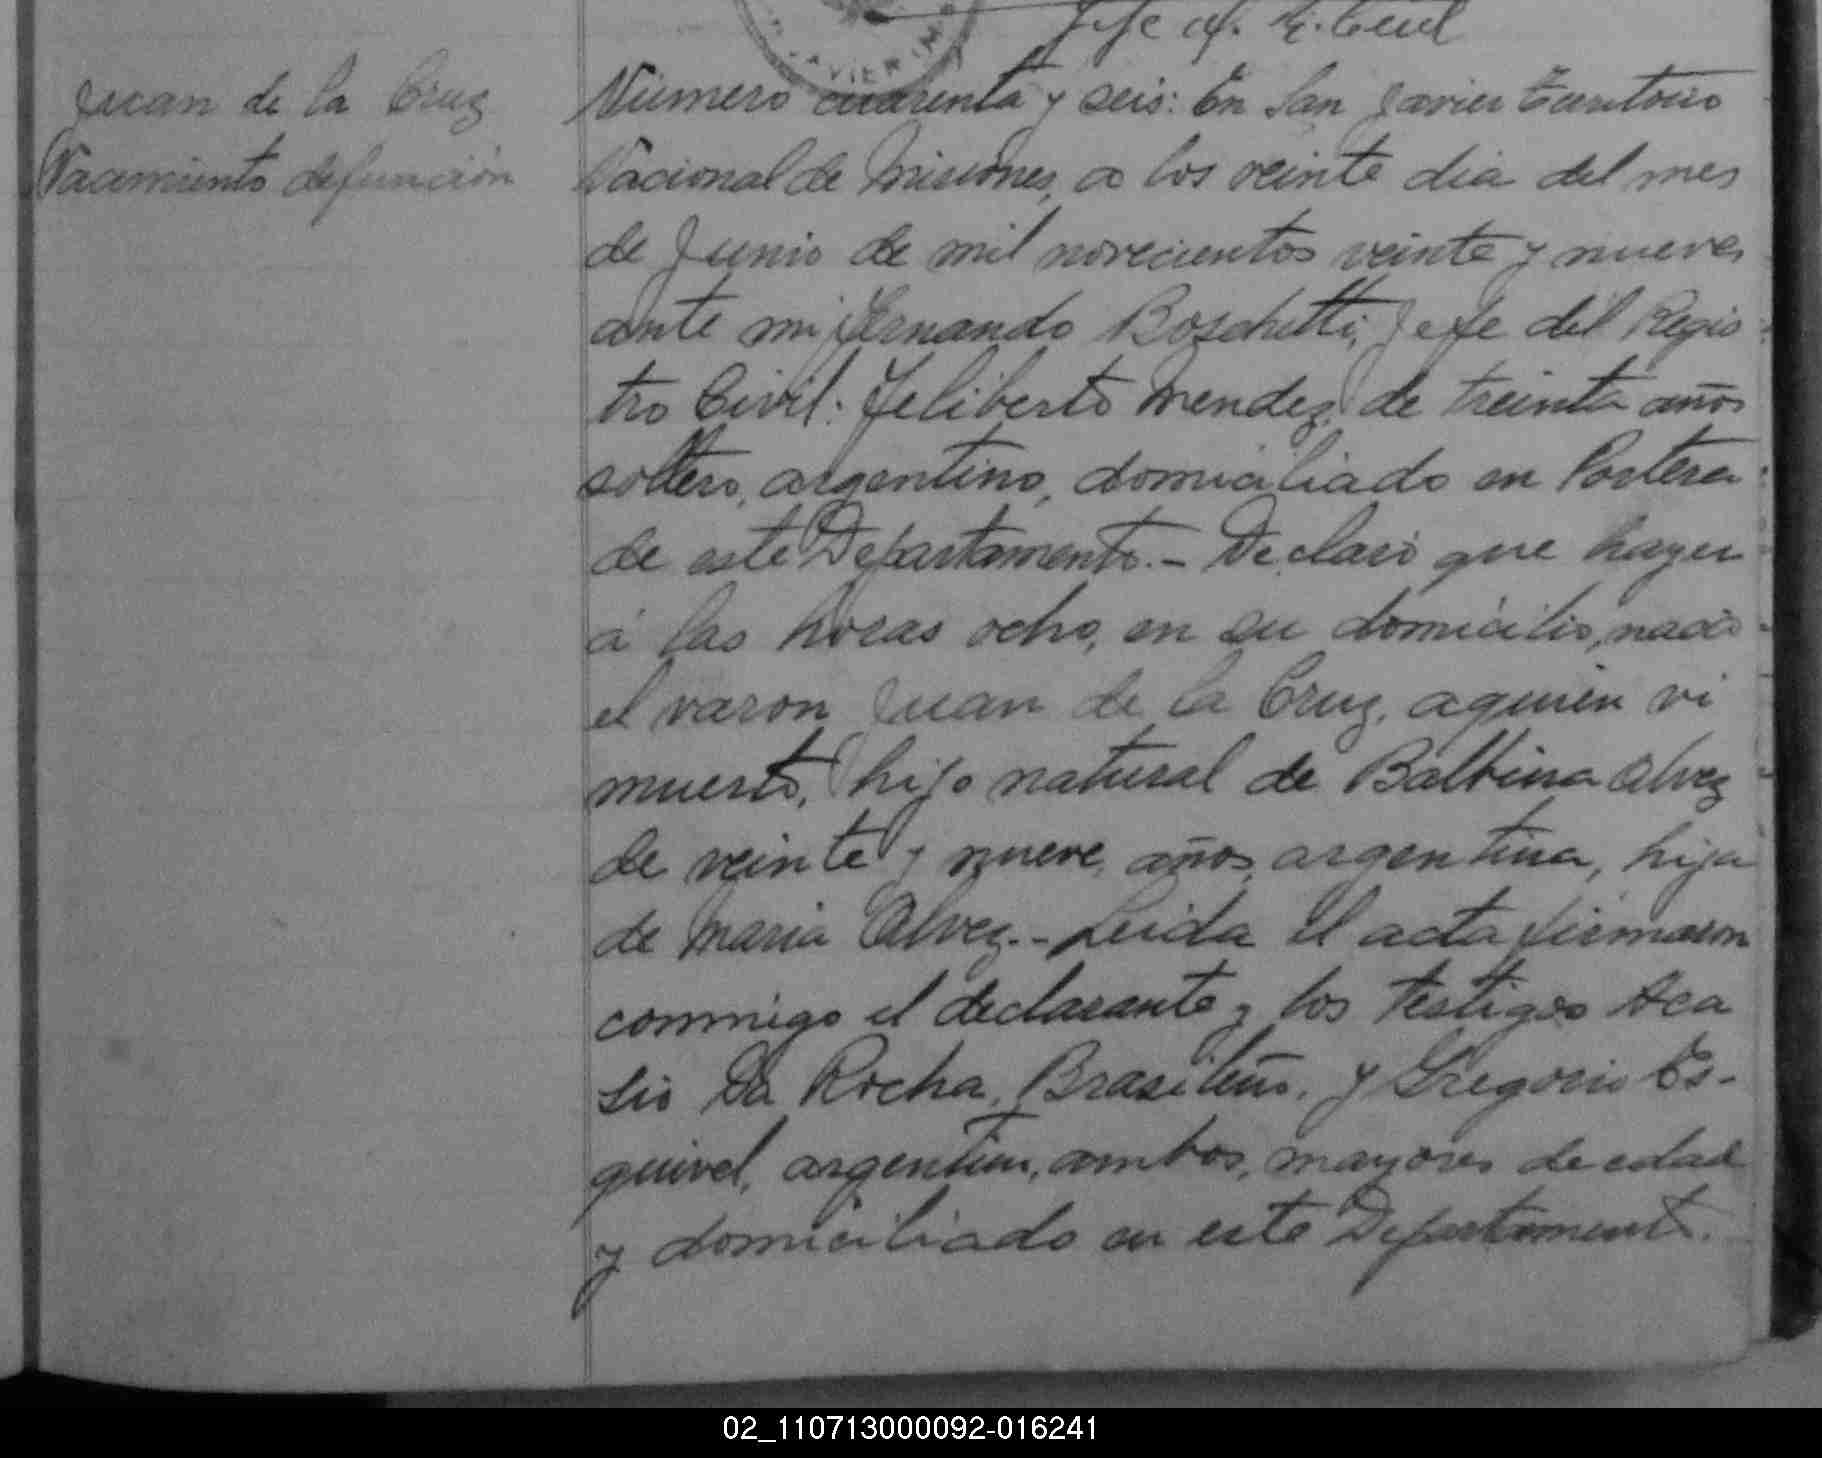 Jefe of. R. Civil
JAVIER (M
Juan de la Cruz
Nacimiento defunción
Número cuarenta y seis: En San Javier Territorio
Nacional de Misiones, a los veinte dia del mes
de Junio de mil novecientos veinte y nueve,
ante mi Fernando Boschetti, Jefe del Regis
tro Civil: Feliberto Mendez, de treinta años
soltero, argentino, domiciliado en Portera
de este Departamento.- Declaró que hayer
á las horas ocho, en su domicilio, nació
el varon Juan de la Cruz, aquien vi
muerto, hijo natural de Balbina Alvez
de veinte y nueve, años, argentina, hija
de Maria Alvez.- Leida el acta firmaron
conmigo el declarante y los testigos Aca
sio Da Rocha, Brasileño, y Gregorio Es-
quivel, argentino, ambos, mayores de edad
y domiciliado en este Departamento.
02_110713000092-016241